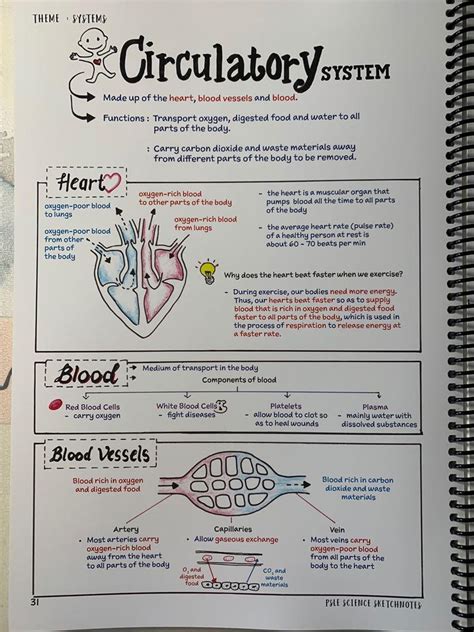 THEME • SYSTEMS
Circulatory SYSTEM
Made up of the heart, blood vessels and blood.
Functions : Transport oxygen, digested food and water to all
parts of the body.
: Carry carbon dioxide and waste materials away
from different parts of the body to be removed.
Heart
oxygen-rich blood
to other parts of the body
oxygen-poor blood
to lungs
oxygen-rich blood
from lungs
oxygen-poor blood
from other
parts of
the body
- the heart is a muscular organ that
pumps blood all the time to all parts
of the body
- the average heart rate (pulse rate)
of a healthy person at rest is
about 60 - 70 beats per min
Why does the heart beat faster when we exercise?
- During exercise, our bodies need more energy.
Thus, our hearts beat faster so as to supply
blood that is rich in oxygen and digested food
faster to all parts of the body, which is used in
the process of respiration to release energy at
a faster rate.
Blood
Medium of transport in the body
Components of blood
Red Blood Cells
- carry oxygen
White Blood Cells
- fight diseases
Platelets
- allow blood to clot so
as to heal wounds
Plasma
- mainly water with
dissolved substances
Blood Vessels
Blood rich in oxygen
and digested food
Blood rich in carbon
dioxide and waste
materials
Artery
• Most arteries carry
oxygen-rich blood
away from the heart
to all parts of the body
Capillaries
• Allow gaseous exchange
O₂ and
digested
food
CO₂ and
waste
materials
Vein
• Most veins carry
oxygen-poor blood
from all parts of the
body to the heart
31
PSLE SCIENCE SKETCHNOTES